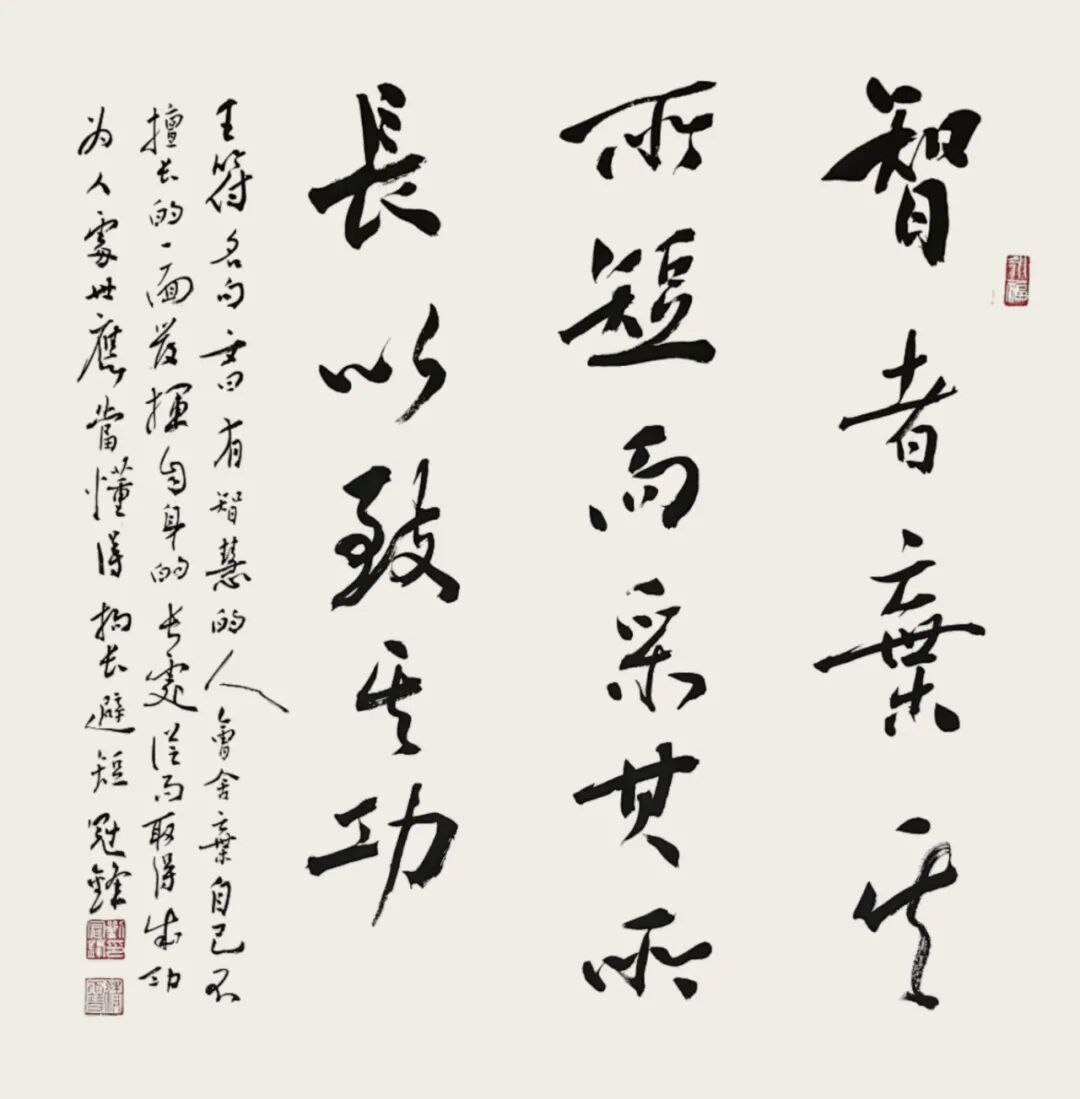 智者棄其
所短而采其所
長以致其功
王符名句有智慧的人會舍棄自己不
擅长的一面發揮自身的长處從而取得成功
为人處世應當懂得揚长避短冠鋒